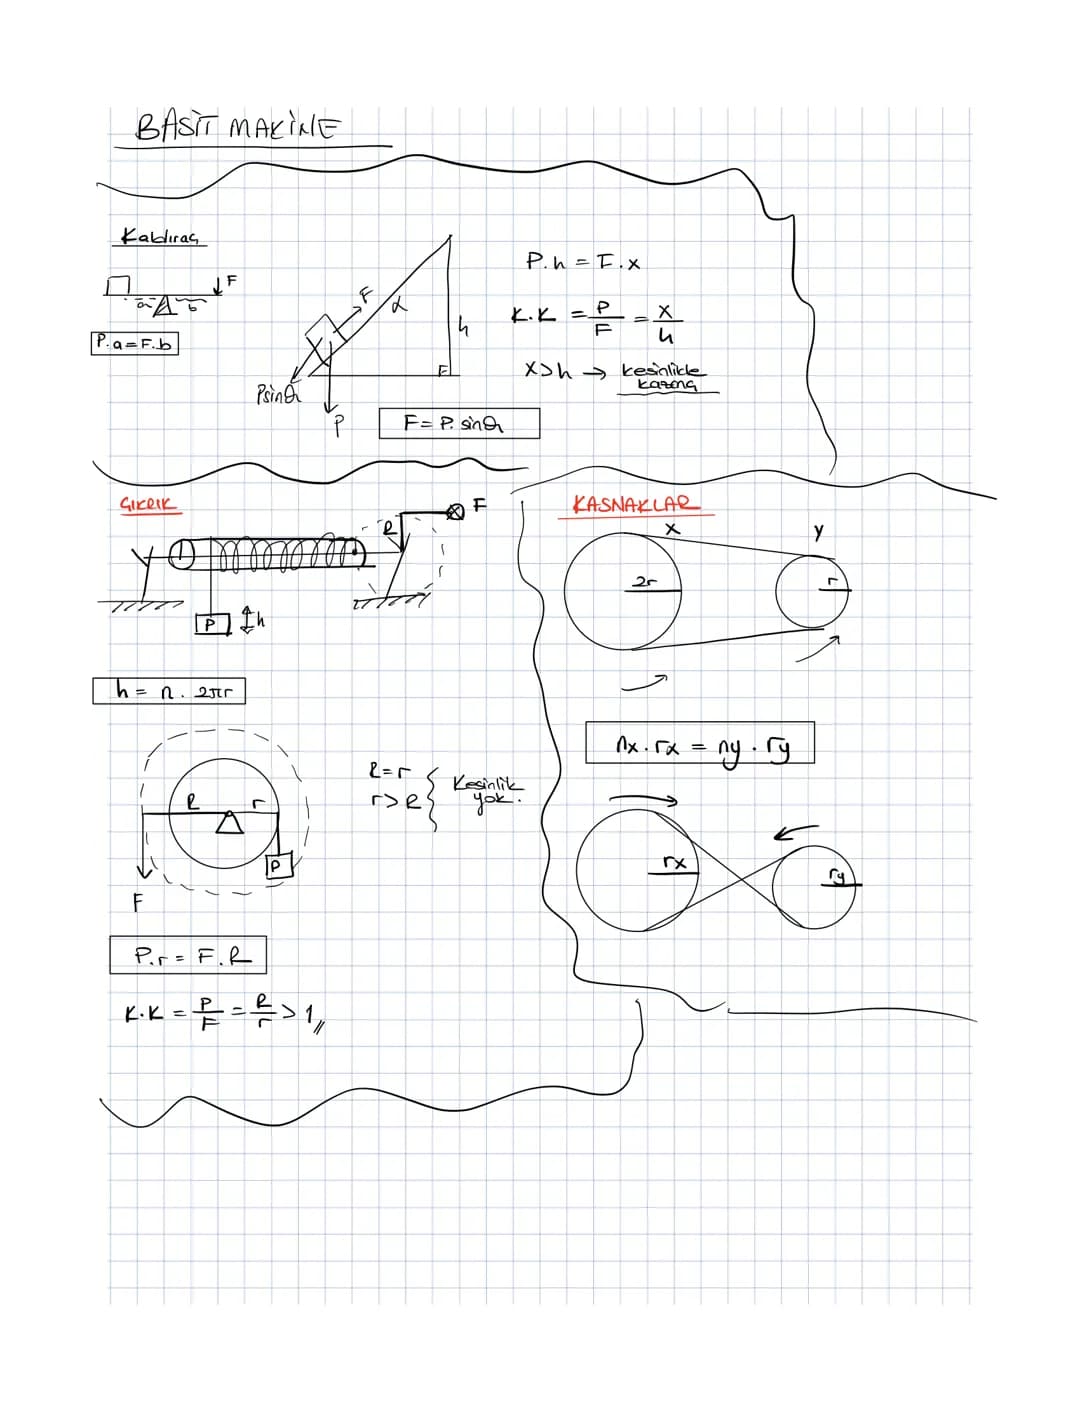 BASİT MAKİNE
Kaldıraç
F
a b
P.a=F.b
F
α
h
Psinθ
P
F= P. sinθ
P.h = F.x
K.K = P/F = x/h
x>h → kesinlikle
kazanç
ÇIKRIK
R
F
P h
h = n. 2πr
R r
P
F
R=r
r>R
Kesinlik
yok.
P.r = F.R
K.K = P/F = R/r > 1,,
KASNAKLAR
x y
2r r
nx.rx = ny.ry
rx ry